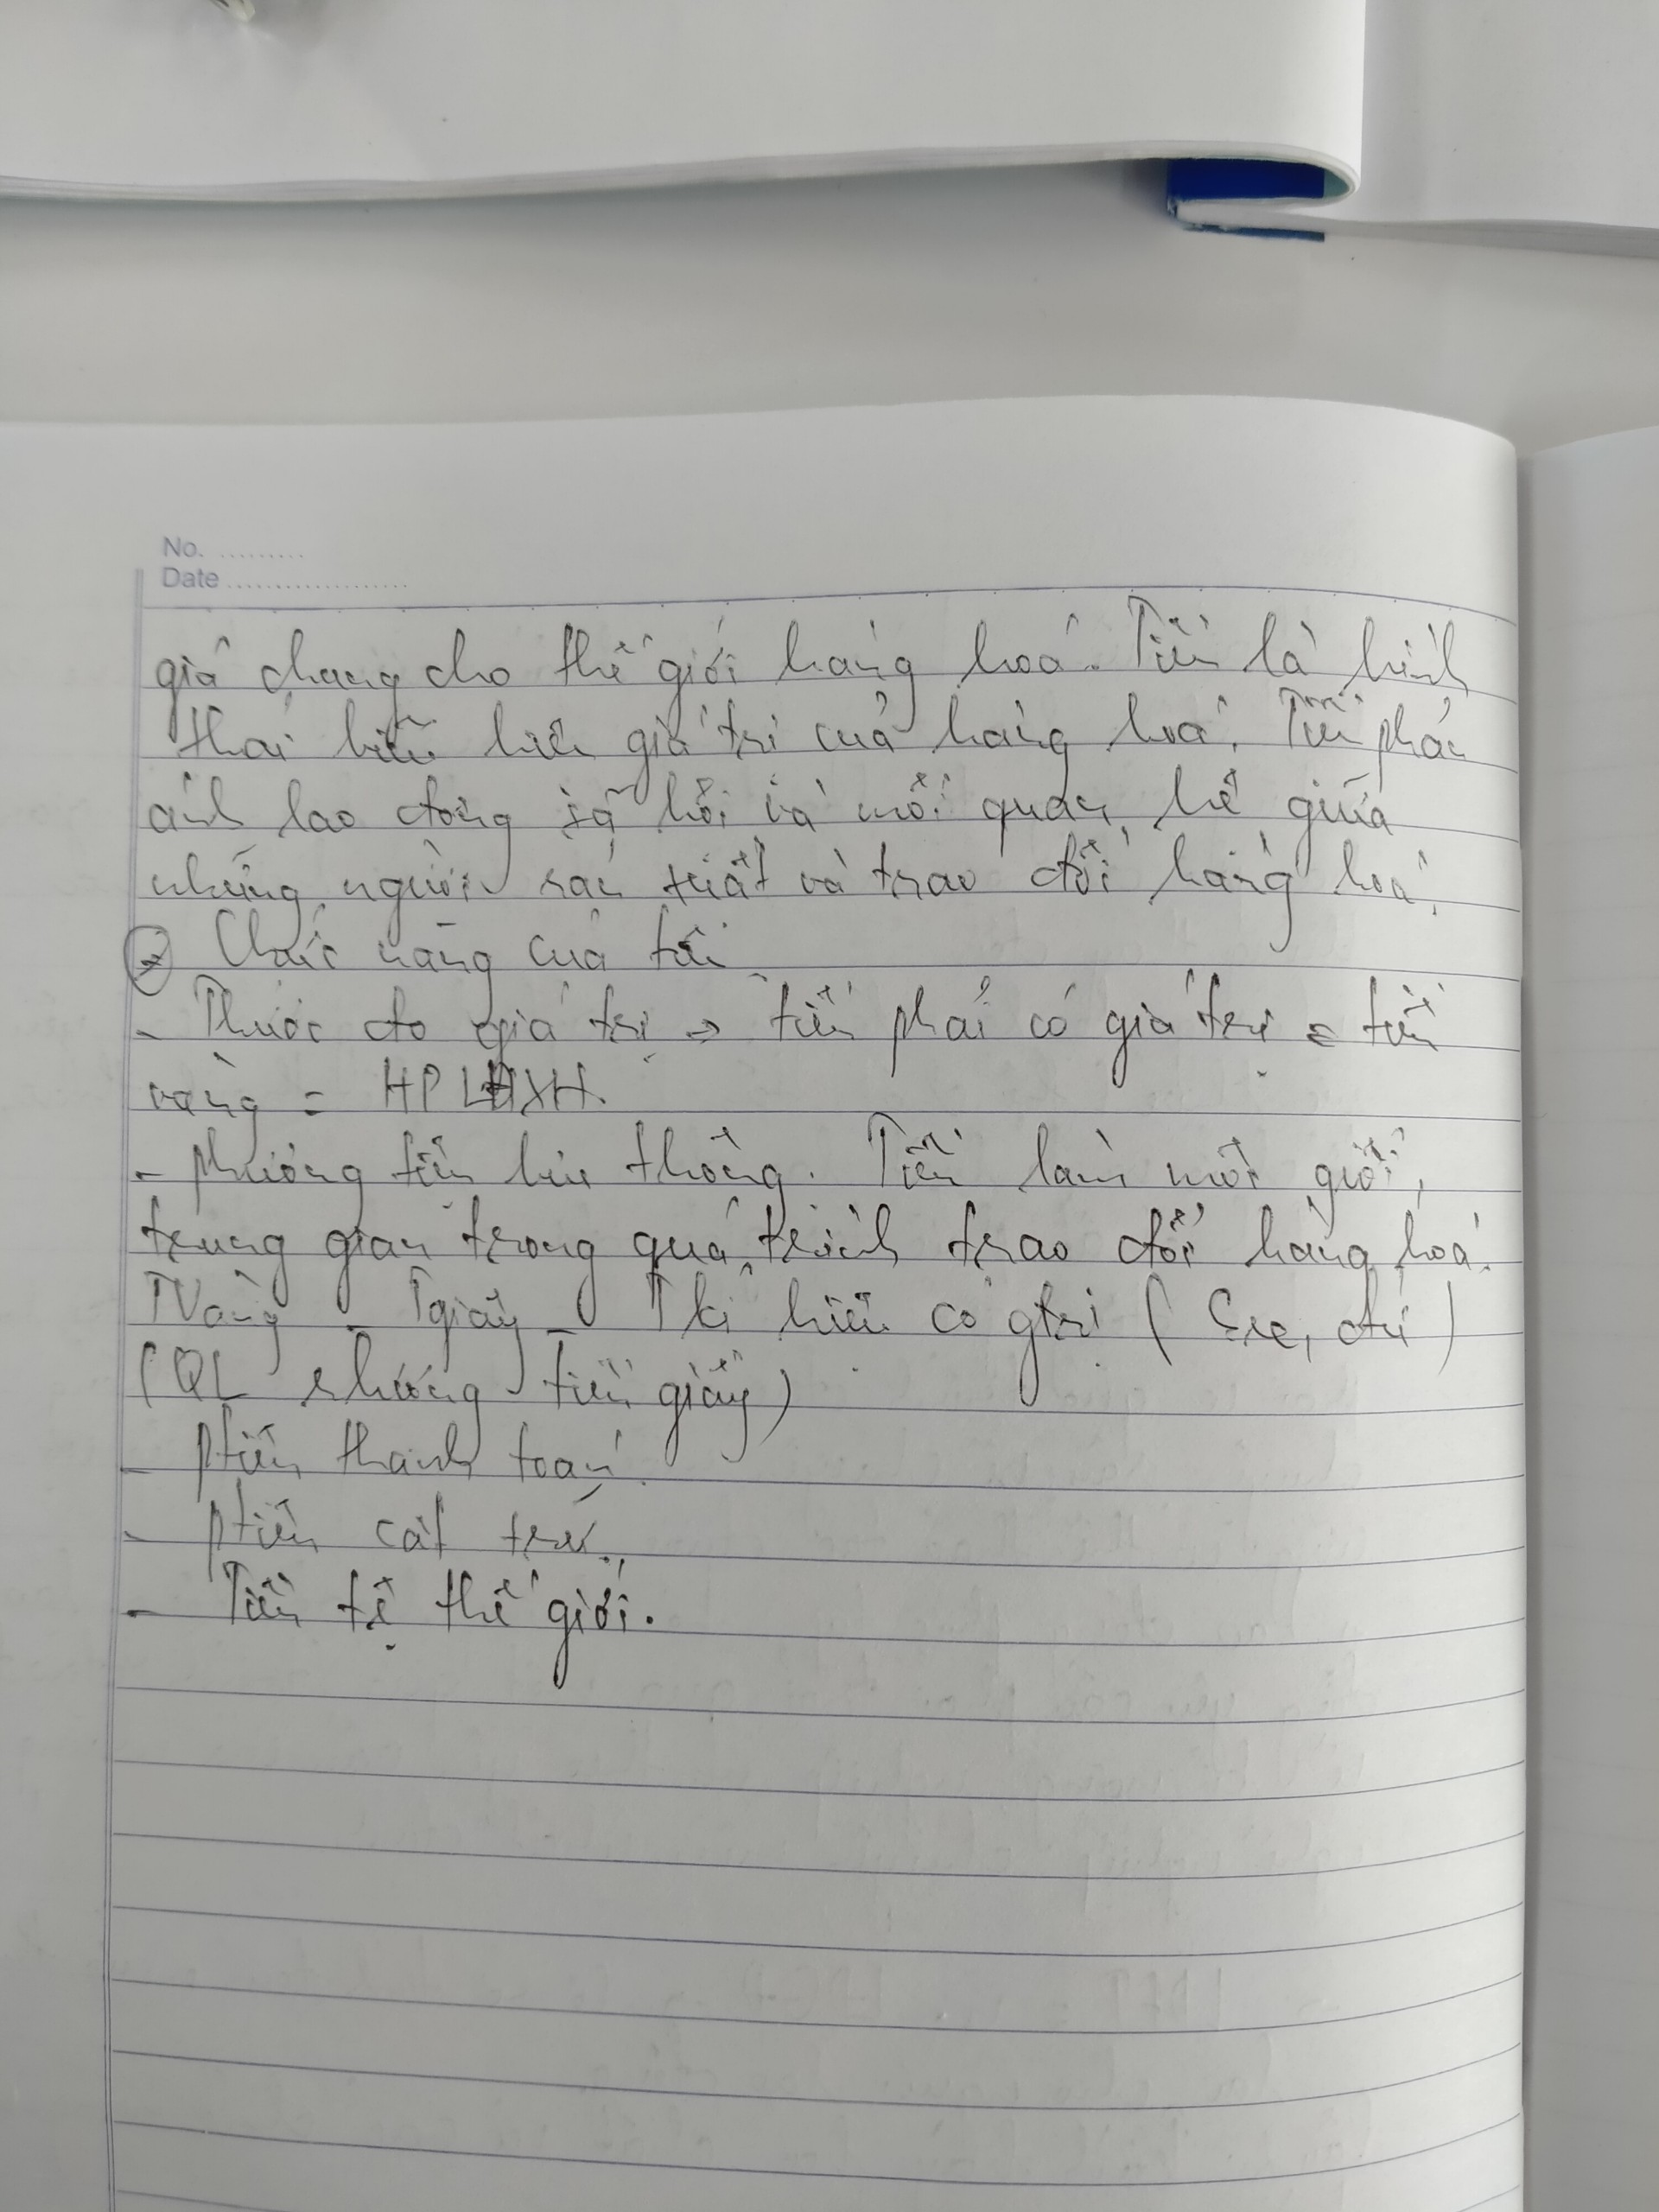 No. .........
Date ...................
giá chung cho thế giới hàng hoá. Tiền là hình
thái biểu hiện giá trị của hàng hoá. Tiền phản
ánh lao động xã hội và mối quan hệ giữa
những người sản xuất và trao đổi hàng hoá.
Chức năng của tiền
- Thước đo giá trị → tiền phải có giá trị = tiền
vàng = HPLĐXH.
- phương tiện lưu thông. Tiền làm môi giới,
trung gian trong quá trình trao đổi hàng hoá.
TVàng - Tgiấy - T kí hiệu có gtrị ( Séc, )
(QL tiền giấy)
- ptiện thanh toán.
- ptiện cất trữ.
- Tiền tệ thế giới.